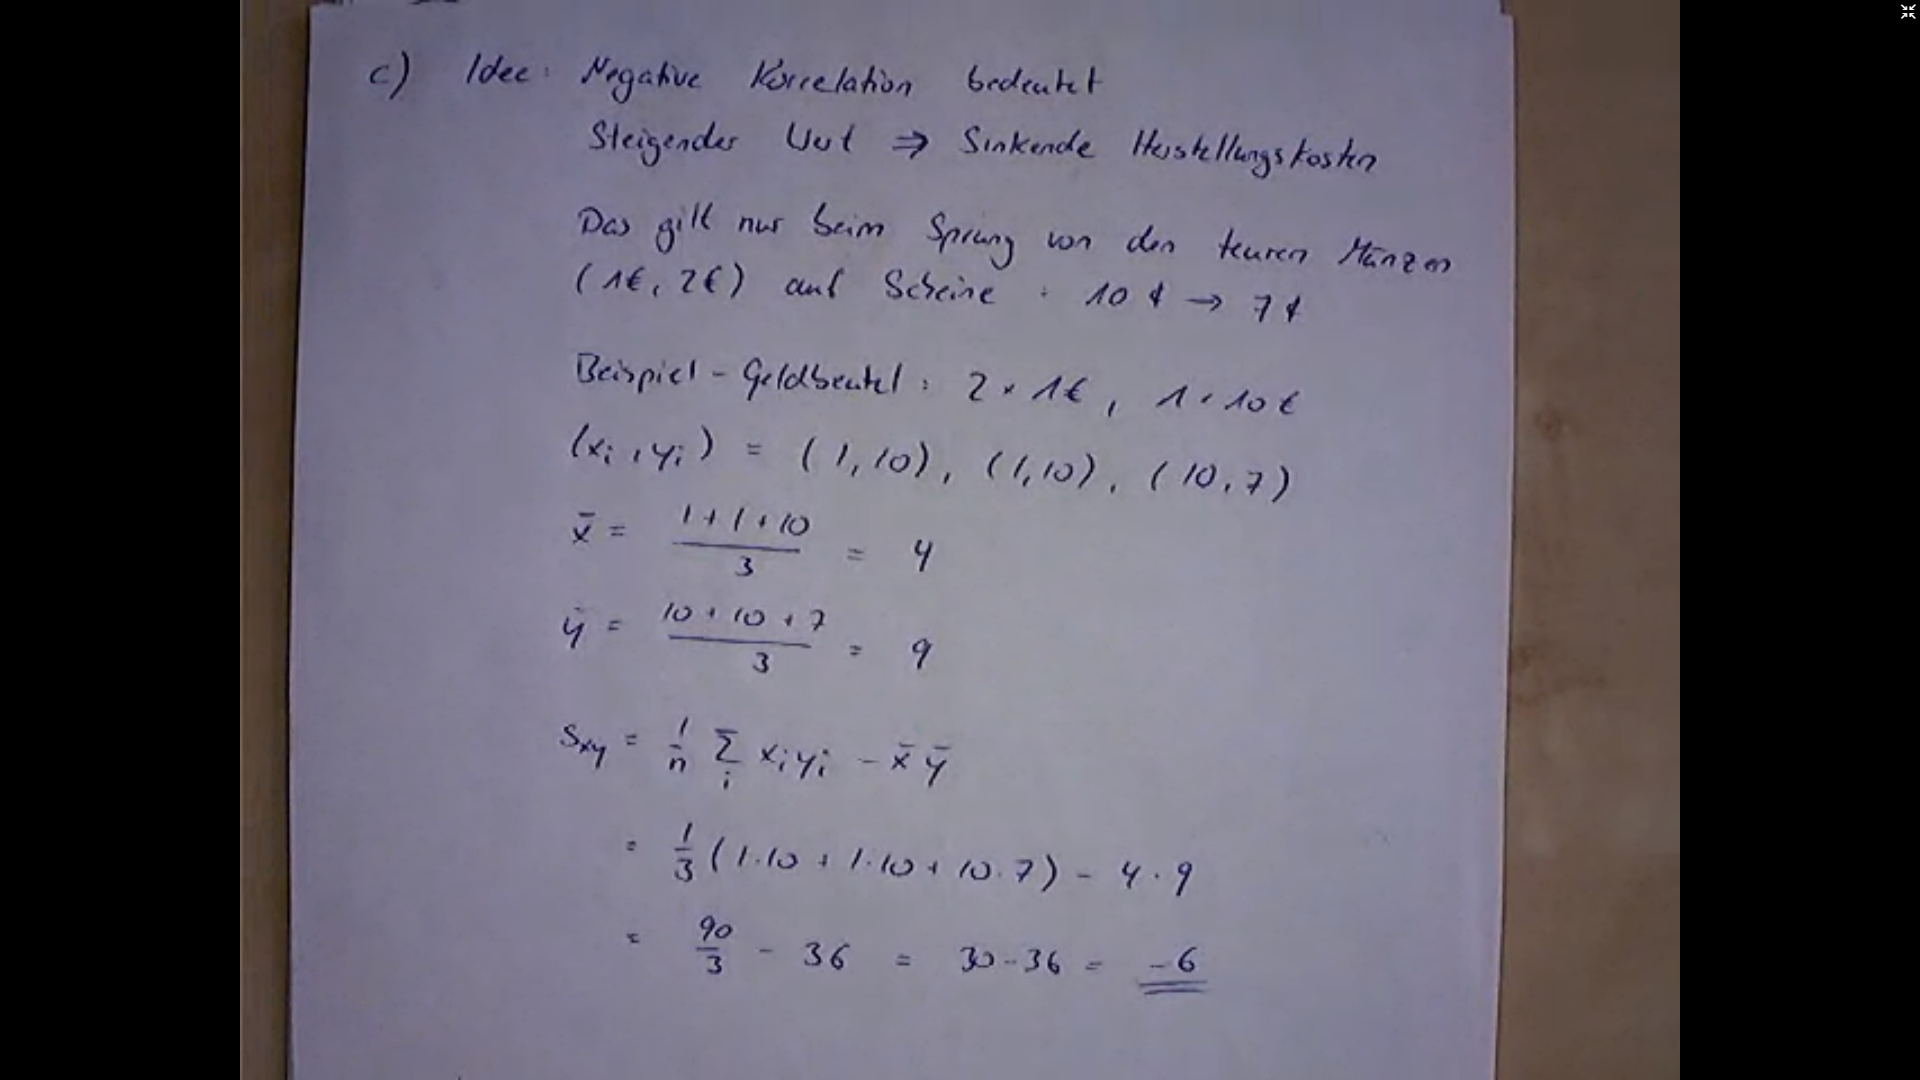 c) Idee: Negative Korrelation bedeutet
Steigender Wert ⇒ Sinkende Herstellungskosten
Das gilt nur beim Sprung von den teuren Münzen
(1€, 2€) auf Scheine: 10 ¢ → 7 ¢
Beispiel-Geldbeutel: 2 × 1€, 1 × 10€
(xᵢ, yᵢ) = (1,10), (1,10), (10,7)
x̄ = (1+1+10)/3 = 4
ȳ = (10+10+7)/3 = 9
s_xy = 1/n Σᵢ xᵢyᵢ - x̄ ȳ
= 1/3 (1·10 + 1·10 + 10·7) - 4·9
= 90/3 - 36 = 30-36 = -6